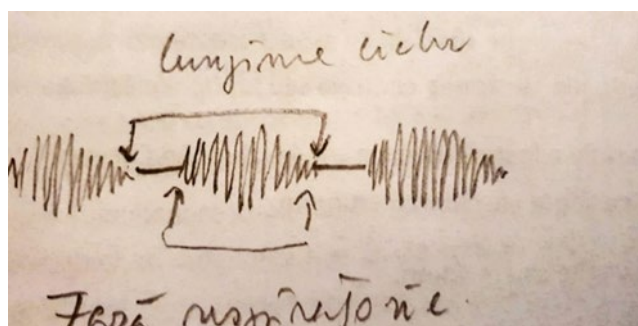 lungime ciclu
Fază respirație